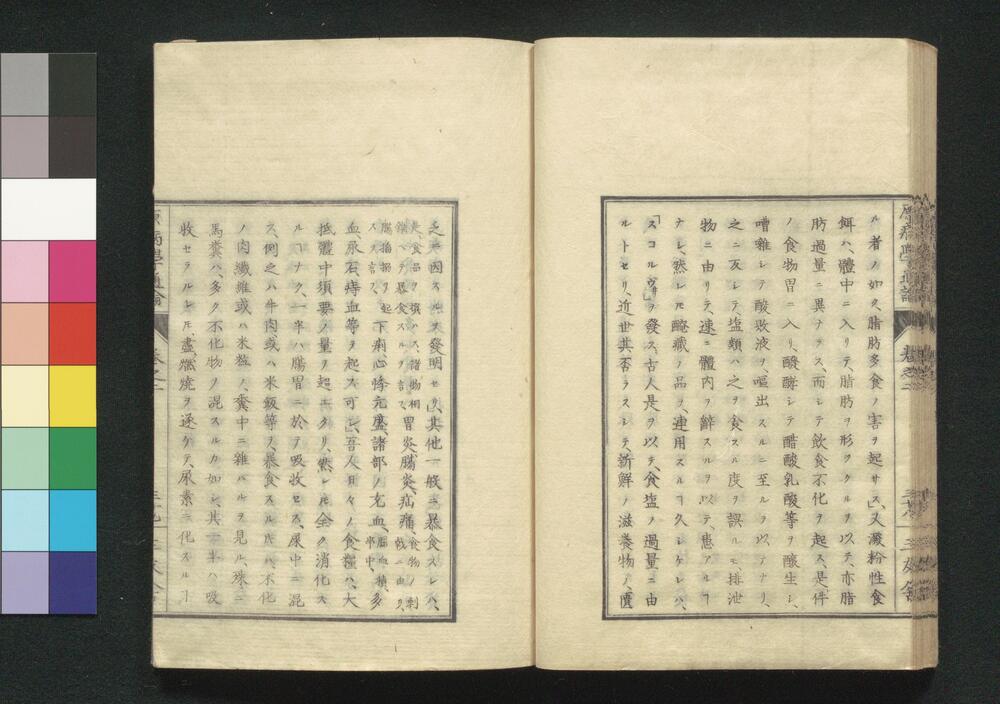 ル者ノ如ク脂肪多食ノ害ヲ起サス」又澱粉性食
餌ハ、體中ニ入リテ、脂肪ヲ形クルヲ以テ、亦脂
肪過量ニ異ナラス、而シテ飲食不化ヲ起ス、是件
ノ食物胃ニ入リ、醗酵シテ醋酸乳酸等ヲ釀生シ、
嘈雜シテ酸敗液ヲ嘔出スルニ至ルヲ以テナリ、
之ニ反シテ、塩類ハ之ヲ食スル度ヲ誤ルモ排泄
物ニ由リテ、速ニ體内ヲ辭スルヲ以テ、患アルヿ
ナシ、然レモ醃藏ノ品ヲ、連用スルヿ久シケレハ、
「スコルヴイ」ヲ發ス、古人是ヲ以テ、食塩ノ過量ニ由
ルトセリ、近世其否ラスシテ、新鮮ノ滋養物ノ、匱
乏ニ因スルヿヲ發明セリ」其他一般ニ暴食スレハ、
胃炎、腸炎、疝痛、
下痢、心悸亢盛、諸部ノ充血、
血尿石、痔血等ヲ起ス可シ」吾人日々ノ食糧ハ、大
抵體中須要ノ量ヲ超エタリ、然レモ全ク消化ス
ルヿナク、一半ハ腸胃ニ於テ吸收セス、屎中ニ混
ス、例之ハ牛肉或ハ米飯等ヲ暴食スル時ハ、不化
ノ肉纖維或ハ米粒ノ、糞中ニ雜ハルヲ見ル、殊ニ
馬糞ハ、多ク不化物ノ混スルカ如シ、其一半ハ吸
收セラルレモ、盡燃燒ヲ遂ケテ、尿素ニ化スルヿ